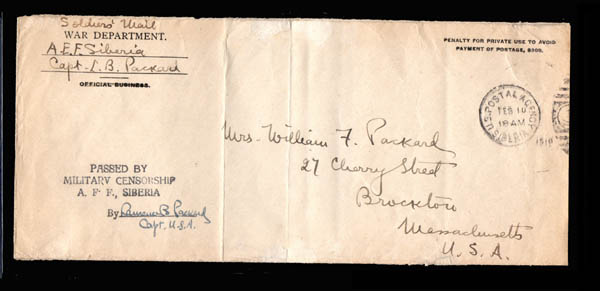 Soldiers' Mail
WAR DEPARTMENT.
A.E.F. Siberia
Capt. L. B. Packard
OFFICIAL BUSINESS.
PENALTY FOR PRIVATE USE TO AVOID
PAYMENT OF POSTAGE, $300.
U.S. POSTAL AGENCY
FEB 10
18 AM
SIBERIA
1919
Mrs. William F. Packard
27 Cherry Street
Brockton
Massachusetts
U.S.A.
PASSED BY
MILITARY CENSORSHIP
A. F. F., SIBERIA
By Laurence B. Packard
Capt. U.S.A.